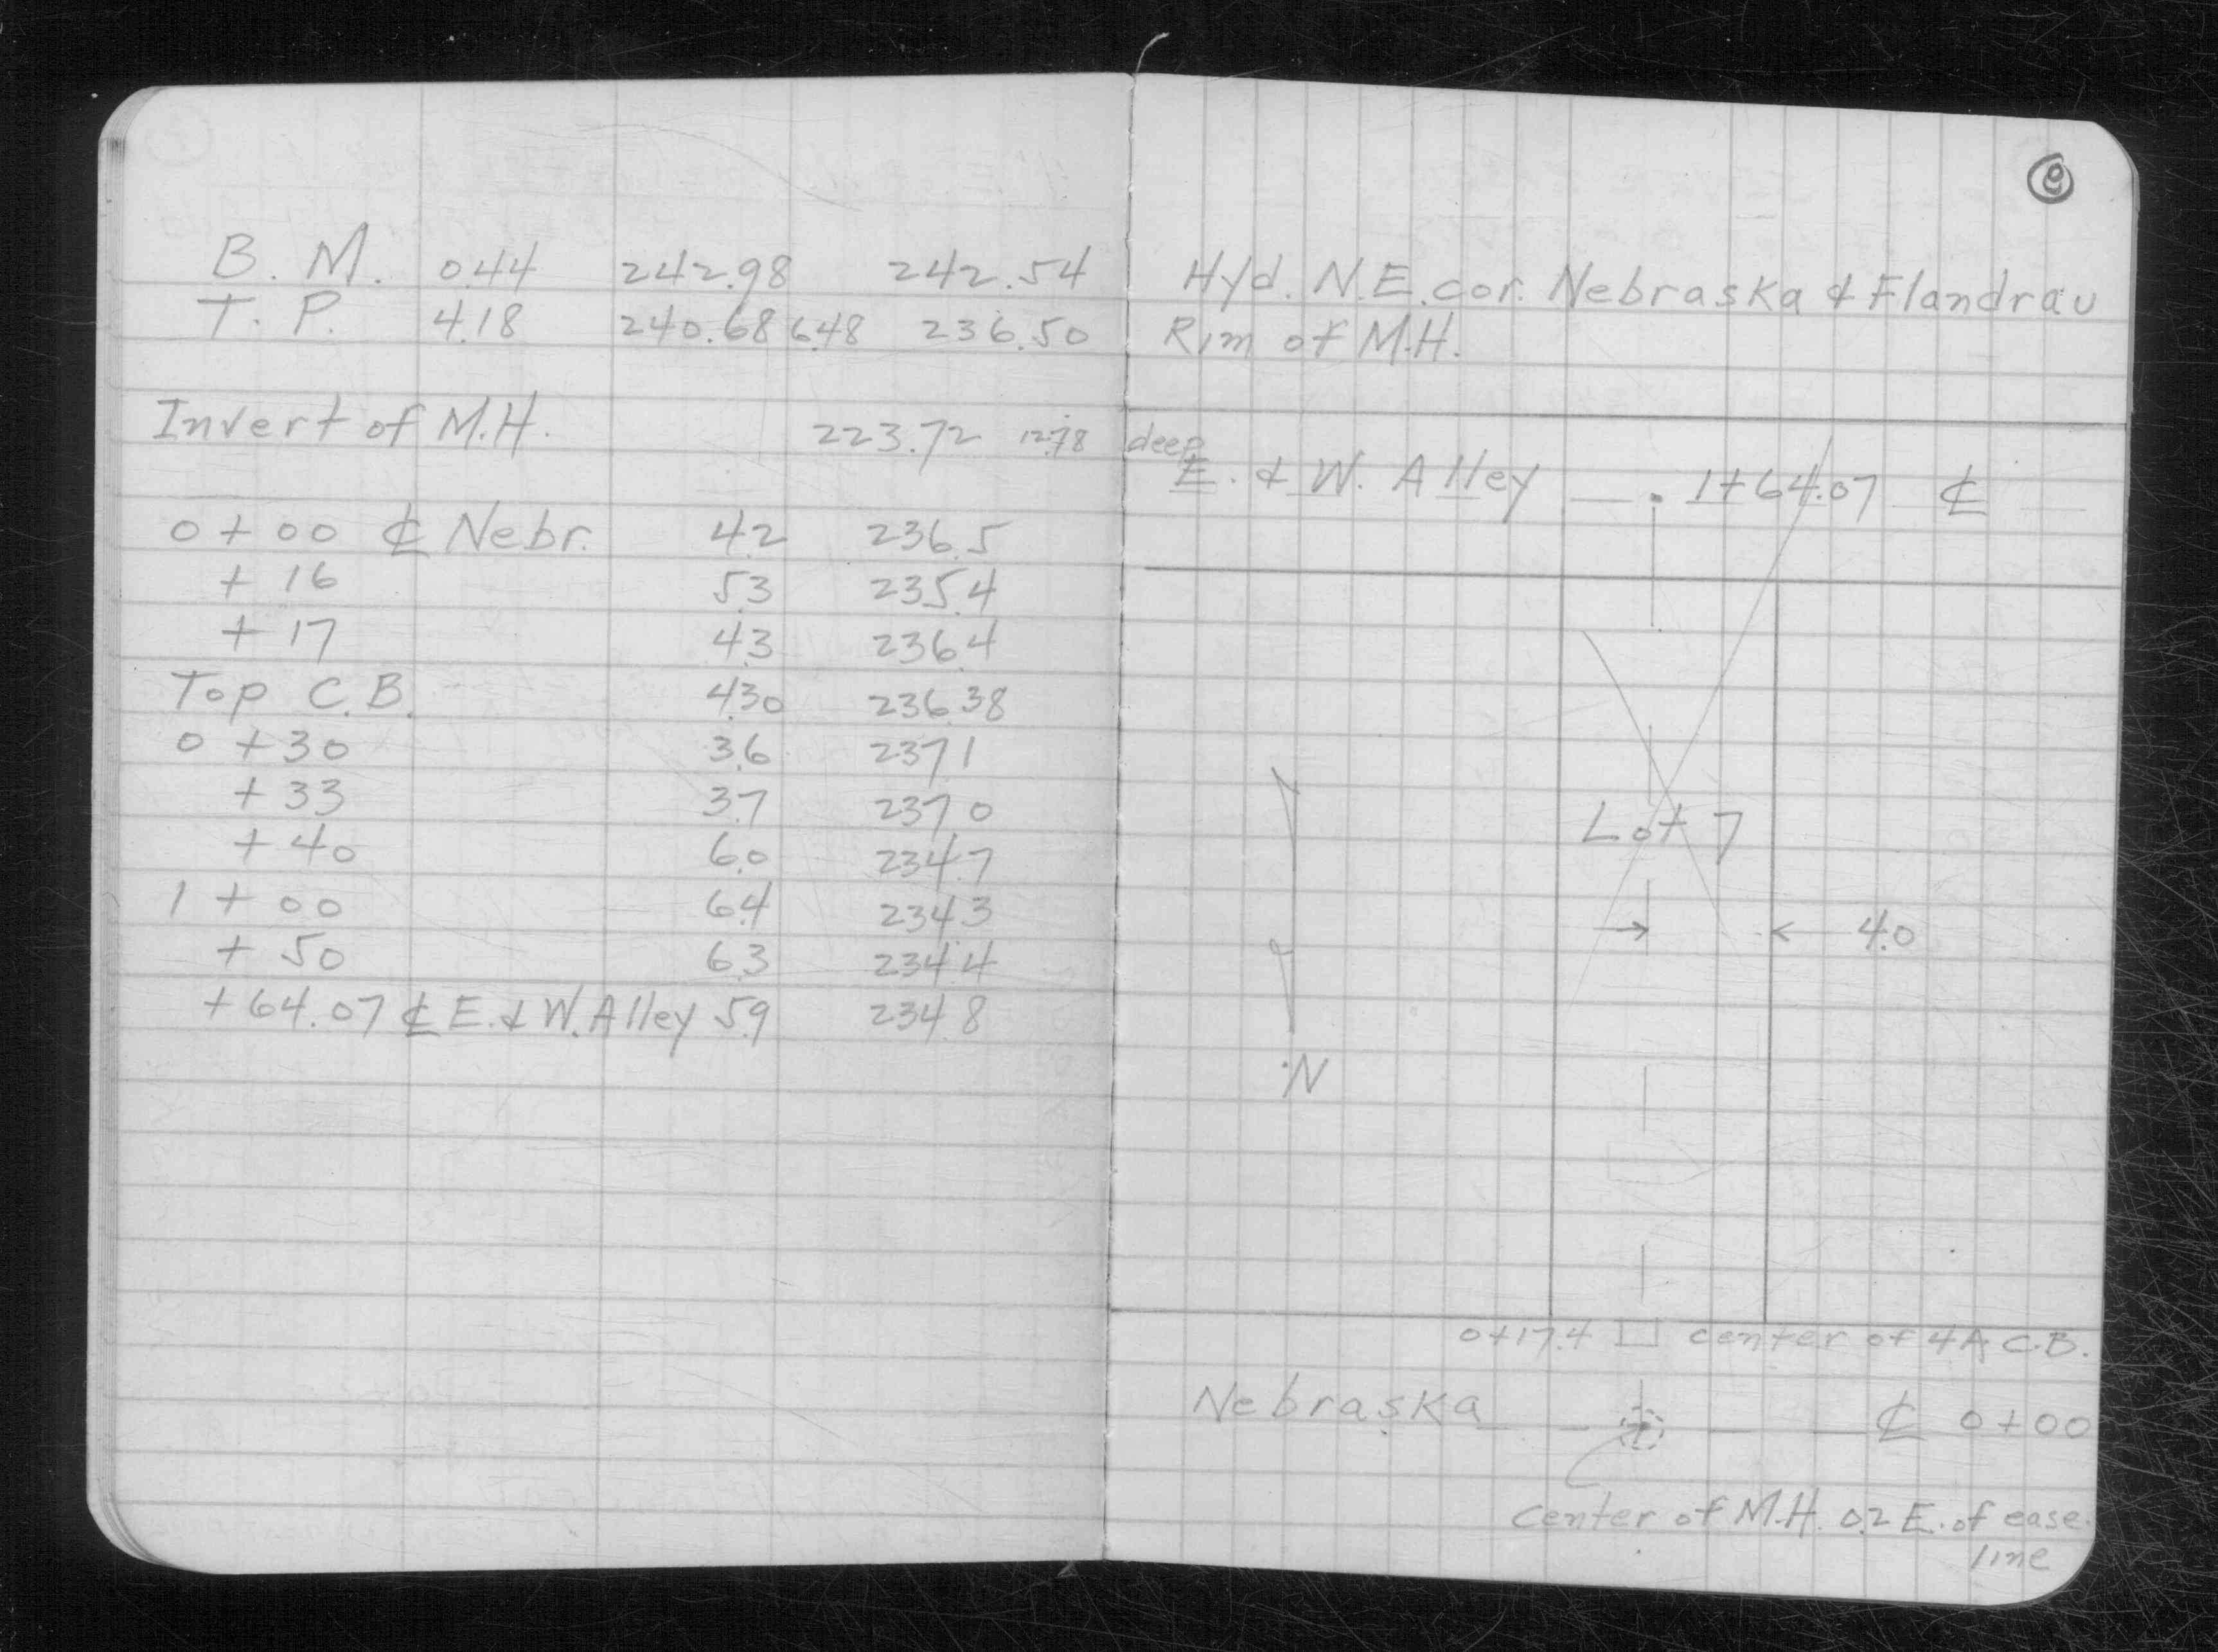 B. M. 0.44 242.98 242.54
T. P. 4.18 240.68 6.48 236.50
Invert of M.H. 223.72 12.78 deep
0+00 ℄ Nebr. 4.2 236.5
+ 16 5.3 235.4
+ 17 4.3 236.4
Top C.B. 4.30 236.38
0 +30 3.6 237.1
+ 33 3.7 237.0
+ 40 6.0 234.7
1 + 00 6.4 234.3
+ 50 6.3 234.4
+64.07 ℄ E. & W. Alley 5.9 234.8
Hyd. N.E. cor. Nebraska & Flandrau
Rim of M.H.
E. & W. Alley 1+64.07 ℄
Lot 7
4.0
N
0+17.4 center of 4A C.B.
Nebraska ℄ 0+00
Center of M.H. 0.2 E. of ease.
line